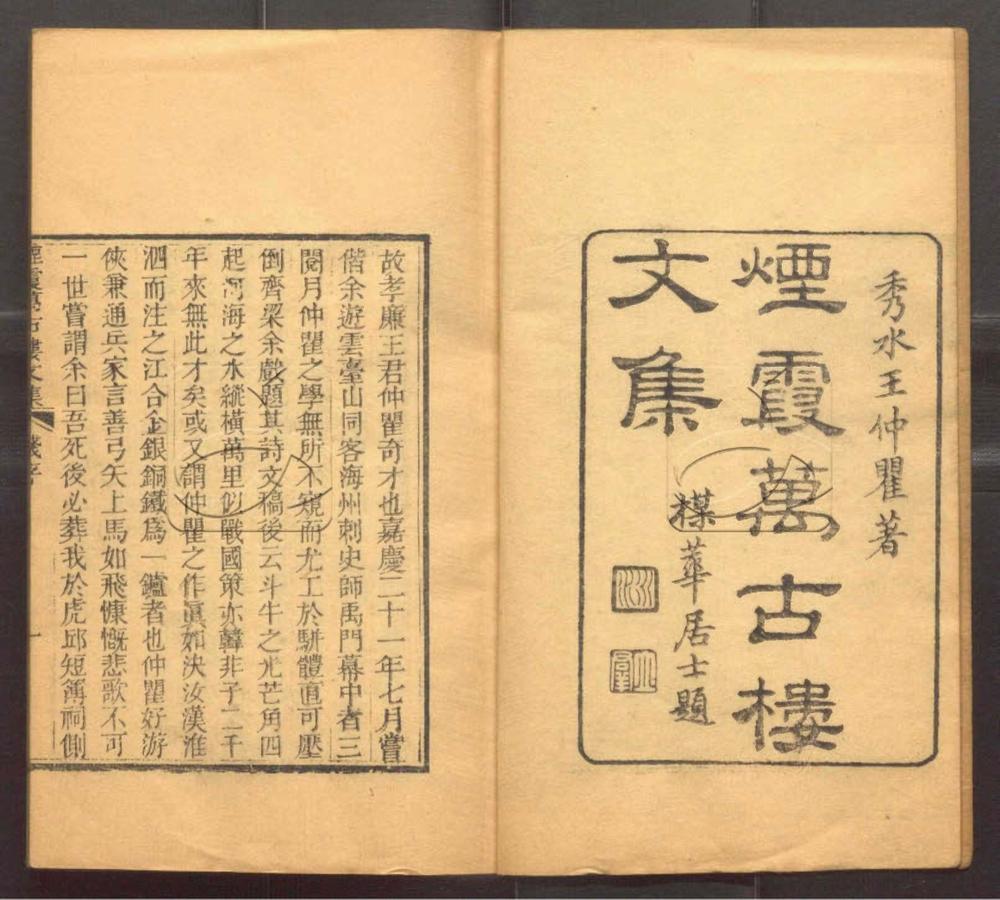 秀水王仲瞿著
煙霞萬古樓
文集
楳華居士題
故孝廉王君仲瞿奇才也嘉慶二十一年七月嘗
偕余遊雲臺山同客海州刺史師禹門幕中者三
閱月仲瞿之學無所不窺而尤工於駢體直可壓
倒齊梁余戲題其詩文稿後云斗牛之光芒角四
起河海之水縱橫萬里似戰國策亦韓非子二千
年來無此才矣或又謂仲瞿之作眞如決汝漢淮
泗而注之江合金銀銅鐵爲一鑪者也仲瞿好游
俠兼通兵家言善弓矢上馬如飛慷慨悲歌不可
一世嘗謂余曰吾死後必葬我於虎邱短簿祠側
煙霞萬古樓文集 錢序 一